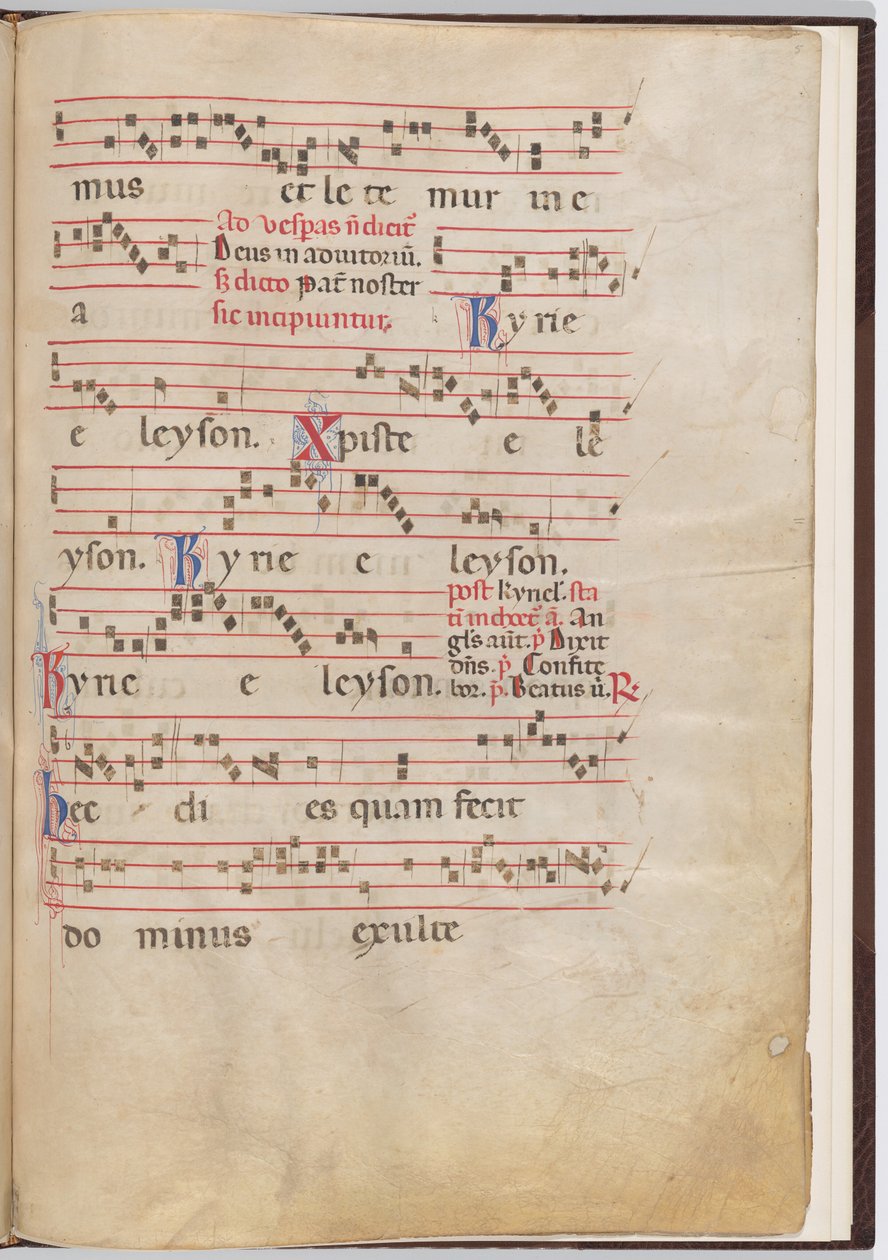 5
mus et le te mur in e
Ad vesp̃as ñ dicit᷒
Deus in adiutoriũ.
sꝫ dicto pat̃ noster
sic incipiuntur.
a Kyrie
e leyson. Xpiste e le
yson. Kyrie e leyson.
post Kyriel. sta
ti᷒ inchoet᷒ a᷒. An
gl's aũt. p᷒ Dixit
dñs. p᷒ Confite
bor. p᷒. Beatus ũ. R
Kyrie e leyson.
hec di es quam fecit
do minus exulte